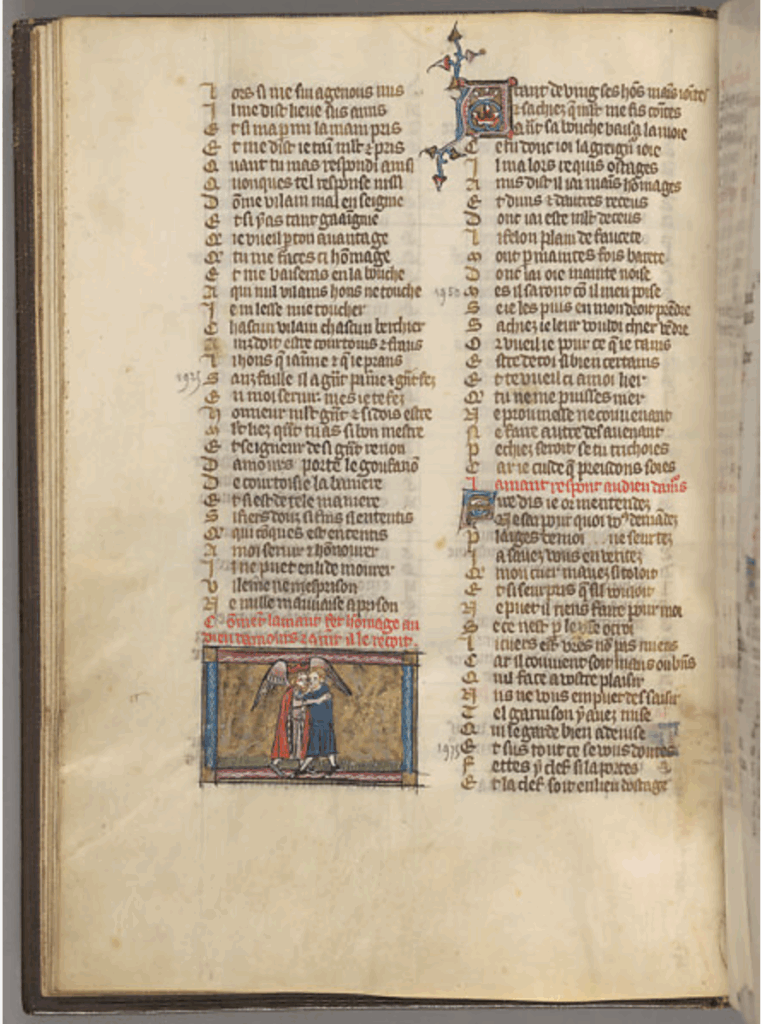 L ors si me sui agenous mis
I l me dist lieue sus amis
E t si ma p mi la main pris
E t me dist ie taim mlt & pris
Q uant tu mas respondu ainsi
O nques tel response nissi
D ōme vilain mal enseigne
E t si y as tant gaaigne
Q ie vueil p ton auantage
Q tu me faces ci hōmage
E t me baiseras en la bouche
A qui nul vilains hons ne touche
I e ni lesse mie toucher
C hascun vilain chascun berchier
A ins doit estre courtois & frans
L i hons q iaime & q ie prans
1935 S anz faille il a gūt paine & gūt fez
E n moi seruir mes ie te fez
H onneur mlt gūt & si dois estre
M lt liez qūt tu as si bon mestre
E t seigneur de si gūt renon
D amours porte le gonfanō
D e courtoisie la baniere
E t si est de tele maniere
S i frers douz si frās si ententis
Q qui cōques est ententis
A moi seruir & hōnourer
I l ne puet en li demourer
V ilenie ne mesprison
N e nulle mauuaise aprison
Cōmēt lamant fet hōmage au
dieu damours & cōmēt il le recoit
A tant deuing ses hōs mais iointes
E t sachiez q mlt me fis cointes
Q ūt sa bouche baisa la moie
C e fu donc ioi la greign ioie
I l ma lors requis ostages
A mis dist il iai mains hōmages
E t duns & dautres receus
D ont iai este mlt deceus
L i felon plain de faucete
M ont p maintes fois barete
D ont iai oie mainte noise
1950 M es il saront cō il men poise
S e ie les puis en mon droit prēdre
S achiez ie leur voudrai chier vēdre
O r vueil ie pour ce q ie taims
E stre de toi si bien certains
E t te vueil ci a moi lier
Q tu ne me puisses nier
N e promesse ne couuenant
N e faire autre desauenant
P echiez seroit se tu trichoies
C ar ie cuide q preudons soies
Lamant respont au dieu damōs
S ire dis ie or mentendez
N e sai pour quoi vo demādez
P laiges de moi ne seurtez
I a sauez vous en veritez
Q mon cuer mauez si toloit
E t si seurpris q sil vouloit
N e puet il riens faire pour moi
S e ce nest p le vre otroi
L i cuers est vres nō pas miens
C ar il couuient soit maus ou bn̄s
Q uil face a vostre plaisir
N us ne vous en puet dessaisir
T el garnison y auez mise
Q ui se garde bien a deuise
1975 E t sus tout ce se vous doutes
F ettes y clef si la portes
E t la clef soit en lieu dostage